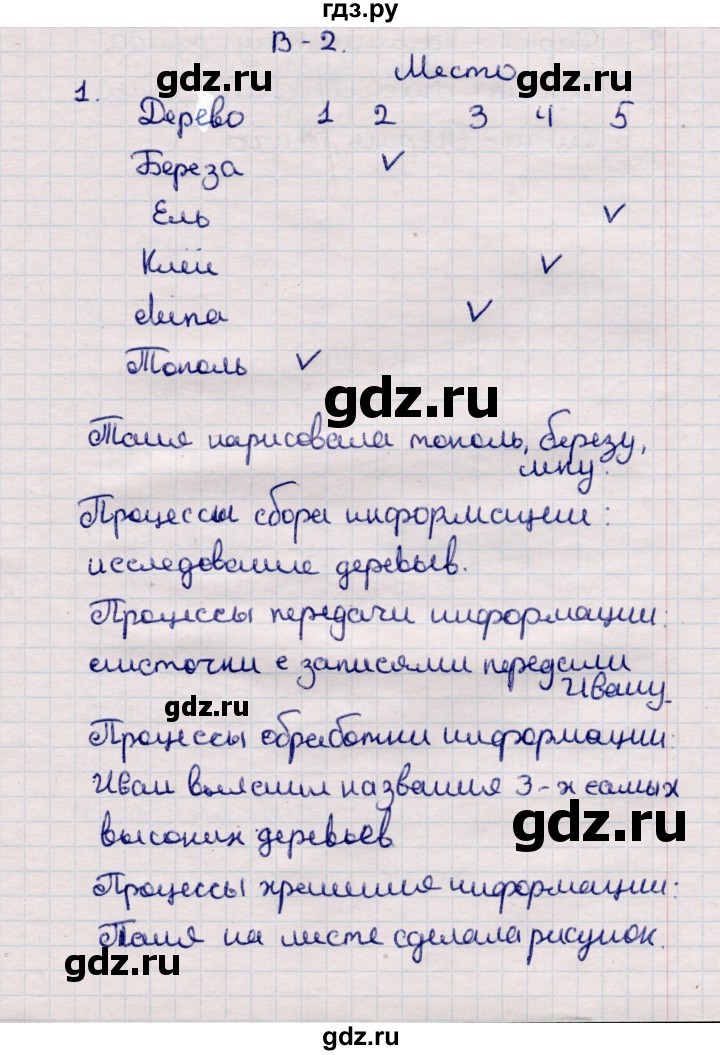 гдз.ру
В-2.
gdz.ru gdz.ru
Место
1.
Дерево 1 2 3 4 5
Береза ✓
Ель ✓
Клён ✓
Липа ✓
Тополь ✓
gdz.ru
Таня нарисовала тополь, березу,
липу.
Процессы сбора информации:
исследование деревьев.
Процессы передачи информации:
листочки с записями передали
Ивану.
gdz.ru
Процессы обработки информации:
Иван выяснил названия 3-х самых
высоких деревьев
gdz.ru
Процессы хранения информации:
Таня на листе сделала рисунок.
gdz.ru
gdz.ru